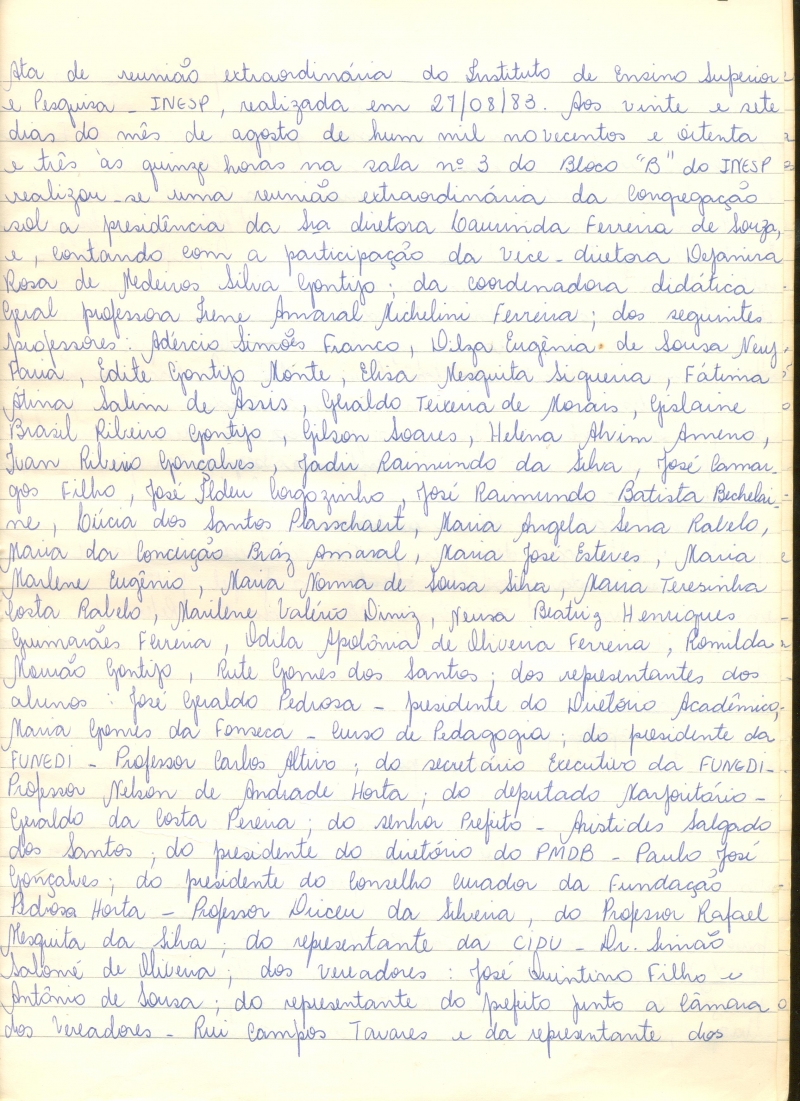 Ata de reunião extraordinária do Instituto de Ensino Superior
e Pesquisa - INESP, realizada em 27/08/83. Aos vinte e sete
dias do mês de agosto de hum mil novecentos e oitenta
e três às quinze horas na sala nº 3 do Bloco "B" do INESP
realizou-se uma reunião extraordinária da Congregação
sob a presidência da Sra diretora Laurinda Ferreira de Souza,
e, contando com a participação da vice-diretora Dejanira
Rosa de Medeiros Silva Gontijo; da coordenadora didática
Geral professora Irene Amaral Michelini Ferreira; dos seguintes
professores: Adércio Simões Franco, Dilza Eugênia de Sousa Neuf
Edite Gontijo Monte, Elisa Mesquita Siqueira, Fátima
Salim de Assis, Geraldo Teixeira de Morais, Gislaine
Brasil Ribeiro Gontijo, Gilson Soares, Helena Alvim Ameno,
Ivan Ribeiro Gonçalves, Jadir Raimundo da Silva, José Camar-
gos Filho, José Ildeu Corgozinho, José Raimundo Batista Bechelai-
ne, Lúcia dos Santos Plasschaert, Maria Angela Sena Rabelo,
Maria da Conceição Bráz Amaral, Maria José Esteves, Maria
Marlene Eugênio, Maria Norma de Sousa Silva, Maria Teresinha
Costa Rabelo, Marilene Valério Diniz, Neusa Beatriz Henriques
Guimarães Ferreira, Odila Apolônia de Oliveira Ferreira, Romilda
Mourão Gontijo, Rute Gomes dos Santos; dos representantes dos
alunos: José Geraldo Pedrosa - presidente do Diretório Acadêmico,
Maria Gomes da Fonseca - Curso de Pedagogia; do presidente da
FUNEDI - Professor Carlos Altivo; do secretário Executivo da FUNEDI-
Professor Nelson de Andrade Horta; do deputado Marjoritário -
Geraldo da Costa Pereira; do senhor Prefeito - Aristides Salgado
dos Santos; do presidente do diretório do PMDB - Paulo José
Gonçalves; do presidente do Conselho Curador da Fundação
Pedrosa Horta - Professor Dirceu da Silveira, do Professor Rafael
Mesquita da Silva; do representante da CIDU - Dr. Simão
Salomé de Oliveira; dos vereadores: José Quintino Filho e
Antônio de Sousa; do representante do prefeito junto a Câmara
dos Vereadores - Rui Campos Tavares e da representante dos